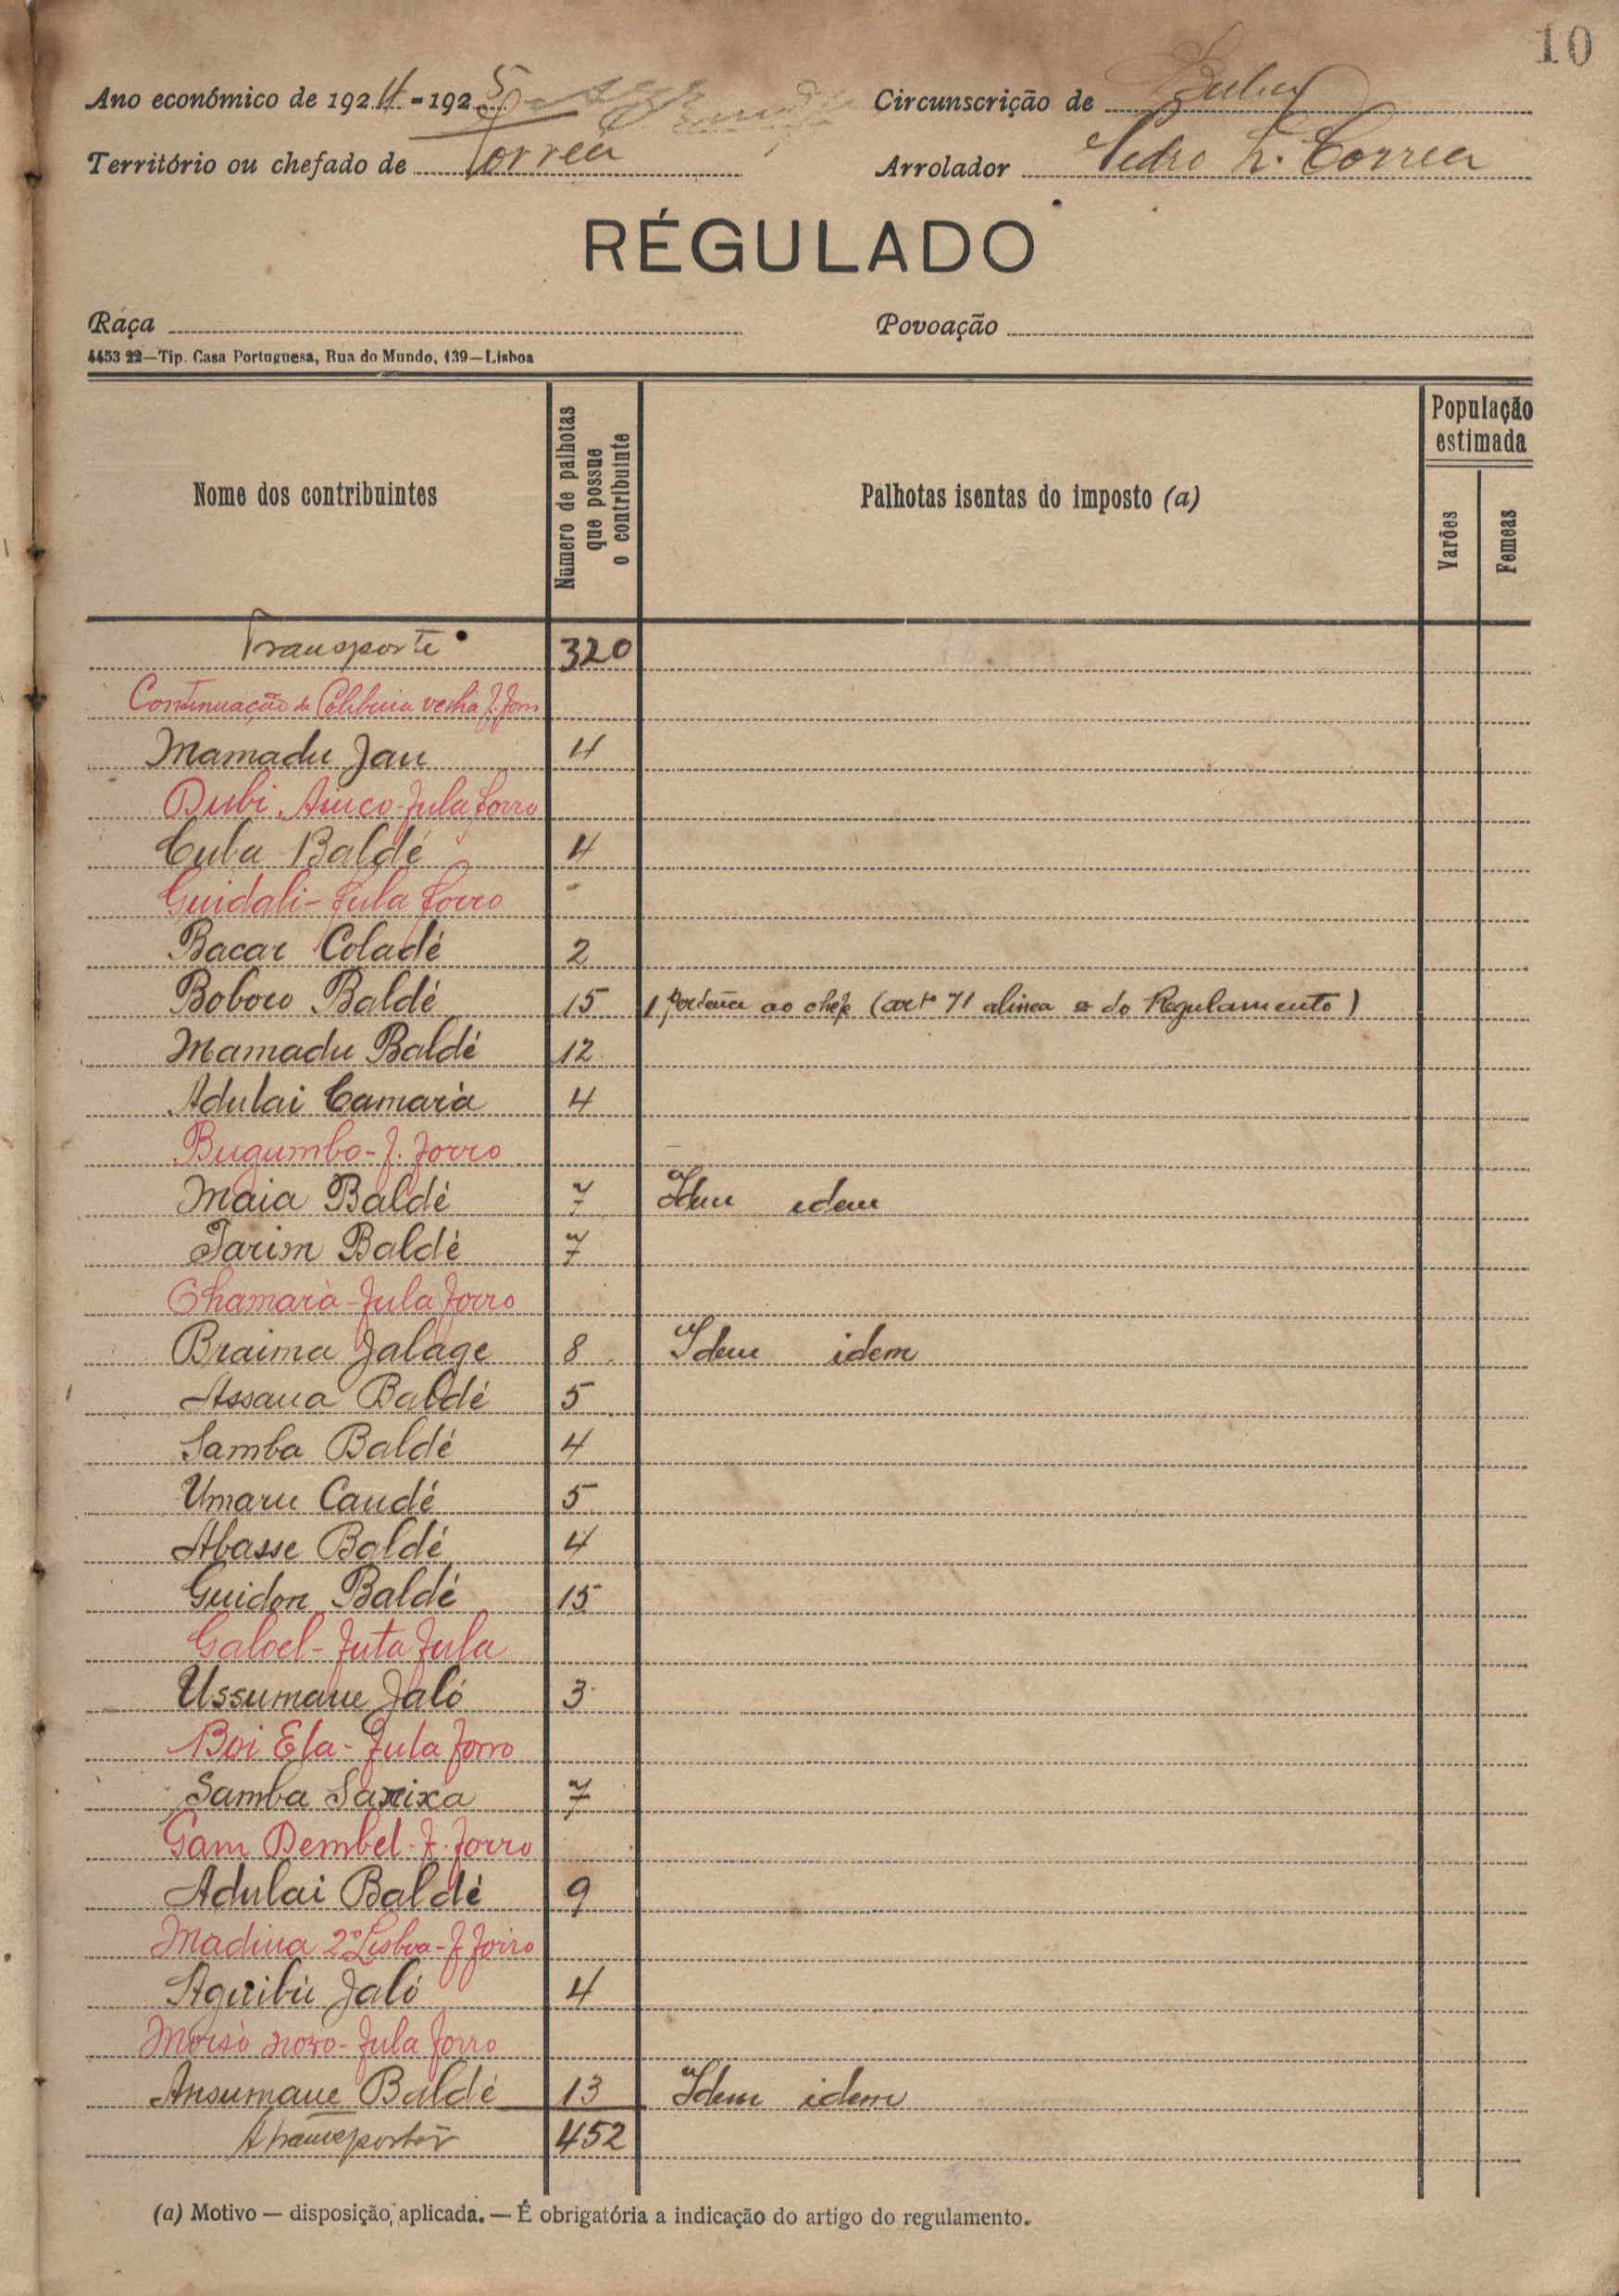 10
Ano económico de 1924-1925
Circunscrição de Buba
Território ou chefado de Correa
Arrolador Pedro L. Correa
RÉGULADO
Raça
Povoação
4453 22—Tip. Casa Portuguesa, Rua do Mundo, 139—Lisboa
Nome dos contribuintes
Número de palhotas que possue o contribuinte
Palhotas isentas do imposto (a)
População estimada
Varões
Femeas
Transporte 320
Continuação de Colibuia velha F. forro
Mamadu Jau 4
Dubi Aiuco-Fula forro
Cula Baldé 4
Guidali-Fula forro
Bacar Coladé 2
Boboro Baldé 15 1 pertence ao chefe (artº 71 alinea a do Regulamento)
Mamadu Baldé 12
Adulai Camará 4
Bugumbo-F. Forro
Maia Baldé 7 Idem idem
Tarim Baldé 7
Chamarà-Fula Forro
Braima Jalage 8 Idem idem
Assana Baldé 5
Samba Baldé 4
Umaru Candé 5
Abasse Baldé 4
Guidon Baldé 15
Galoel-Futa Fula
Ussumane Jaló 3
Boi Ela-Fula Forro
Samba Sanixa 7
Gam Dembel-F. Forro
Adulai Baldé 9
Madina 2º Lisboa-F Forro
Aguibú Jaló 4
Moisò novo-Fula Forro
Ansumane Baldé 13 Idem idem
A transportar 452
(a) Motivo — disposição aplicada. — É obrigatória a indicação do artigo do regulamento.